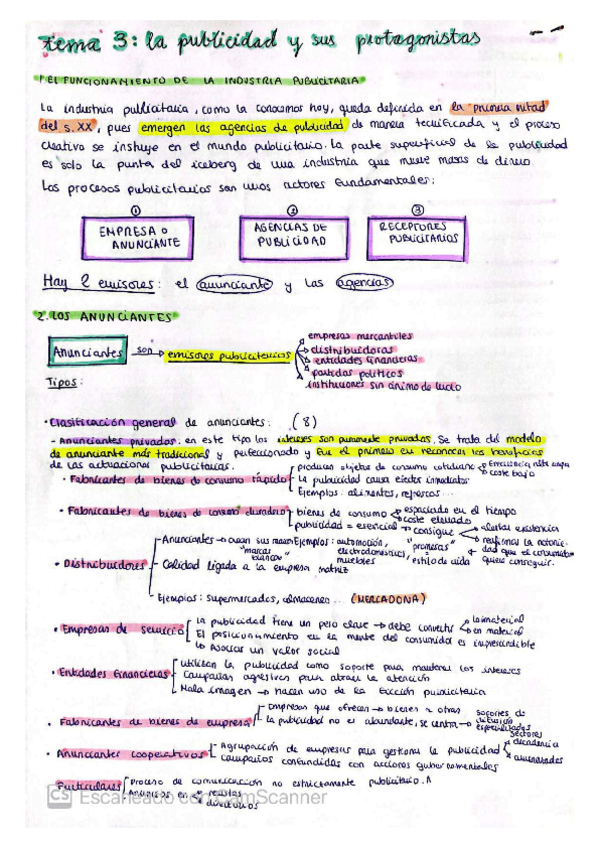 tema 3: la publicidad y sus protagonistas
1. EL FUNCIONAMIENTO DE LA INDUSTRIA PUBLICITARIA
La industria publicitaria, como la conocemos hoy, queda definida en la primera mitad
del s. XX, pues emergen las agencias de publicidad de manera tecnificada y el proceso
creativo se instuye en el mundo publicitario. La parte superficial de la publicidad
es solo la punta del iceberg de una industria que mueve masas de dinero.
Los procesos publicitarios son unos actores fundamentales:
① ② ③
EMPRESA O ANUNCIANTE
AGENCIAS DE PUBLICIDAD
RECEPTORES PUBLICITARIOS
Hay 2 emisores: el anunciante y las agencias
2. LOS ANUNCIANTES
Anunciantes son → emisores publicitarios
empresas mercantiles
distribuidoras
entidades financieras
partidos políticos
instituciones sin ánimo de lucro
Tipos:
· Clasificación general de anunciantes: (8)
- Anunciantes privados: en este tipo los intereses son puramente privados. Se trata del modelo
de anunciante más tradicional y perfeccionado y fue el primero en reconocer los beneficios
de las actuaciones publicitarias.
· Fabricantes de bienes de consumo rápido
producen objetos de consumo cotidiano
coste bajo
La publicidad causa efectos inmediatos
Ejemplos: alimentos, refrescos...
· Fabricantes de bienes de consumo duradero
bienes de consumo
espaciado en el tiempo
coste elevado
publicidad = esencial → consigue
alertar existencia
reafirmar la notorie-
dad que el consumidor
quiere conseguir.
Ejemplos: automoción,
electrodomésticos,
muebles
"promesas"
estilo de vida
· Distribuidores
Anunciantes → crean sus marcas
"marcas blancas"
Calidad ligada a la empresa matriz
Ejemplos: supermercados, almacenes... (MERCADONA)
· Empresas de servicio
La publicidad tiene un peso clave → debe convertir
lo inmaterial
en material
El posicionamiento en la mente del consumidor es imprescindible
Lo asocian un valor social
· Entidades financieras
utilizan la publicidad como soporte para mantener los intereses
Campañas agresivas para atraer la atención
Mala imagen → hacen uso de la ficción publicitaria
· Fabricantes de bienes de empresa
Empresas que ofrecen → bienes a otras
La publicidad no es abundante, se centra →
soportes de difusión
especializados
· Anunciantes cooperativos
Agrupación de empresas para gestionar la publicidad
sectores
decadencia
amenazados
campañas confundidas con acciones gubernamentales
Particulares
Proceso de comunicación no estrictamente publicitario.
Anuncios en
revistas
directorios
CS Escaneado con CamScanner